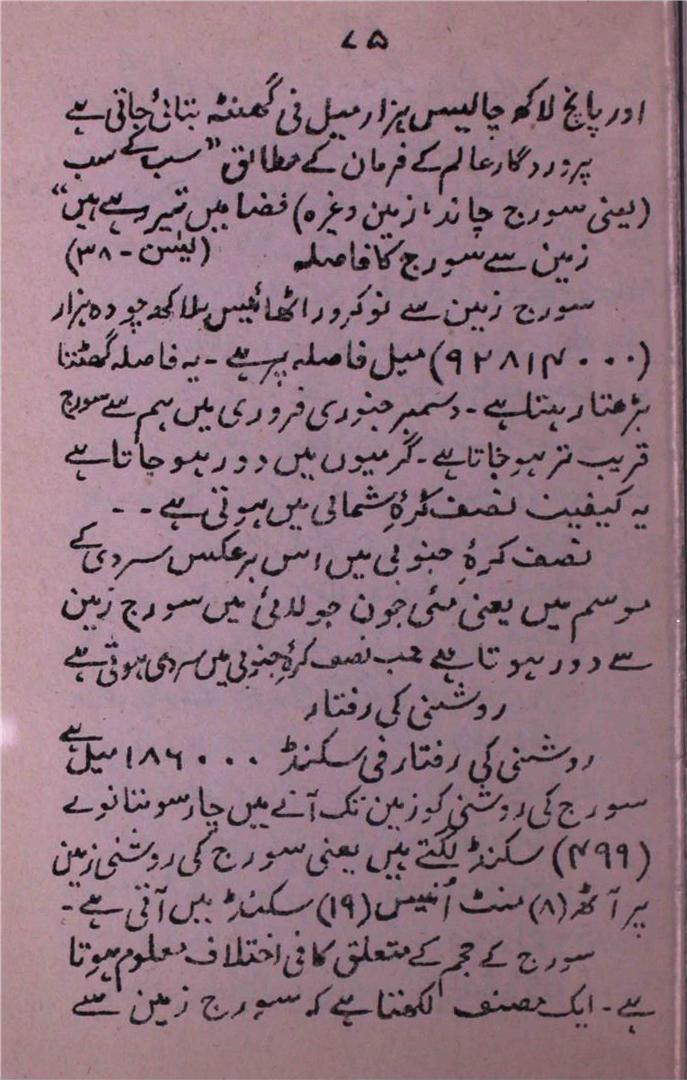 ۷۵
اور پانچ لاکھ چالیس ہزار میل فی گھنٹہ بتائی جاتی ہے
پروردگار عالم کے فرمان کے مطابق " سب کے سب
(یعنی سورج چاند، زمین وغرہ) فضا میں تیر رہے ہیں"
زمین سے سورج کا فاصلہ (یٰسٓن - ۳۸)
سورج زمین سے نو کرور اٹھائیس لاکھ چودہ ہزار
(۹۲۸۱۴۰۰۰) میل فاصلہ پر ہے - یہ فاصلہ گھٹتا
بڑھتا رہتا ہے - دسمبر جنوری فروری میں ہم سے سورج
قریب تر ہو جاتا ہے - گرمیوں میں دور ہو جاتا ہے
یہ کیفیت نصف کرۂ شمالی میں ہوتی ہے - -
نصف کرۂ جنوبی میں اس برعکس سردی کے
موسم میں یعنی مئی جون جولائی میں سورج زمین
سے دور ہوتا ہے جب نصف کرۂ جنوبی میں سردی ہوتی ہے
روشنی کی رفتار
روشنی کی رفتار فی سکنڈ ۱۸۶۰۰۰ میل ہے
سورج کی روشنی کو زمین تک آنے میں چار سو ننانوے
(۴۹۹) سکنڈ لگتے ہیں یعنی سورج کی روشنی زمین
پر آٹھ (۸) منٹ اُنیس (۱۹) سکنڈ میں آتی ہے -
سورج کے حجم کے متعلق کافی اختلاف معلوم ہوتا
ہے - ایک مصنف لکھتا ہے کہ سورج زمین سے